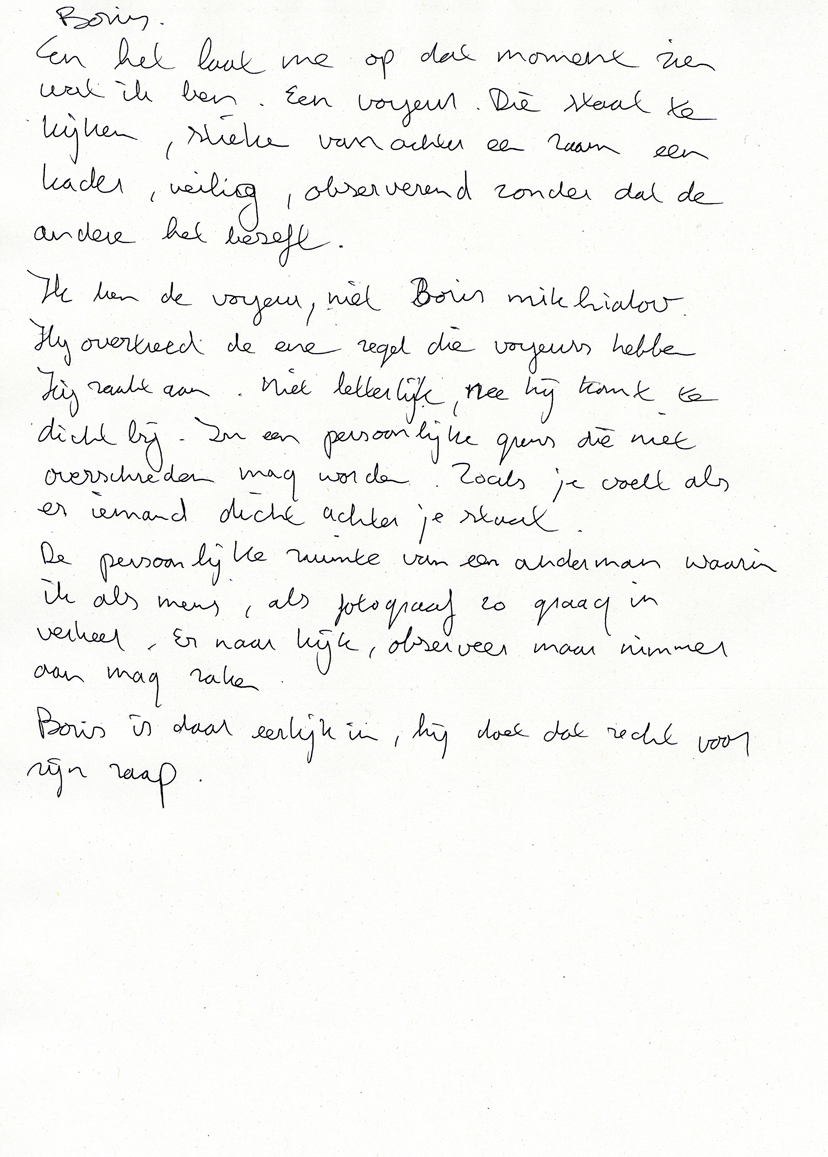 Boris.
En het laat me op dat moment zien
wat ik ben. Een voyeur. Die staat te
kijken, stieke van achter een raam een
kader, veilig, observerend zonder dat de
andere het beseft.
Ik ben de voyeur, niet Boris mikhialov.
Hy overtreed de ene regel die voyeurs hebben
Hij raakt aan. Niet letterlijk, nee hij komt te
dicht bij. In een persoonlijke grens die niet
overschreden mag worden. Zoals je voelt als
er iemand dicht achter je staat.
De persoonlijke ruimte van een anderman waarin
ik als mens, als fotograaf zo graag in
verkeer. Er naar kijk, observeer maar nimmer
aan mag raken.
Boris is daar eerlijk in, hij doet dat recht voor
zijn raap.